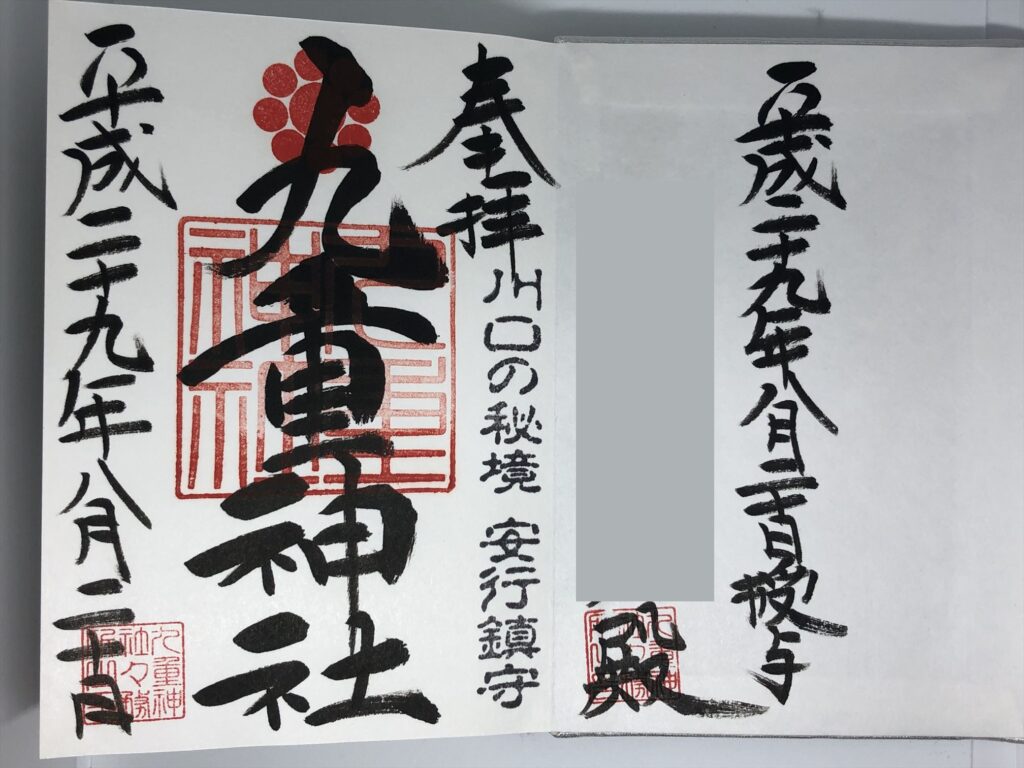 平成二十九年八月二十日授与
殿
奉拝
川口の秘境 安行鎮守
九重神社
平成二十九年八月二十日
九重神社